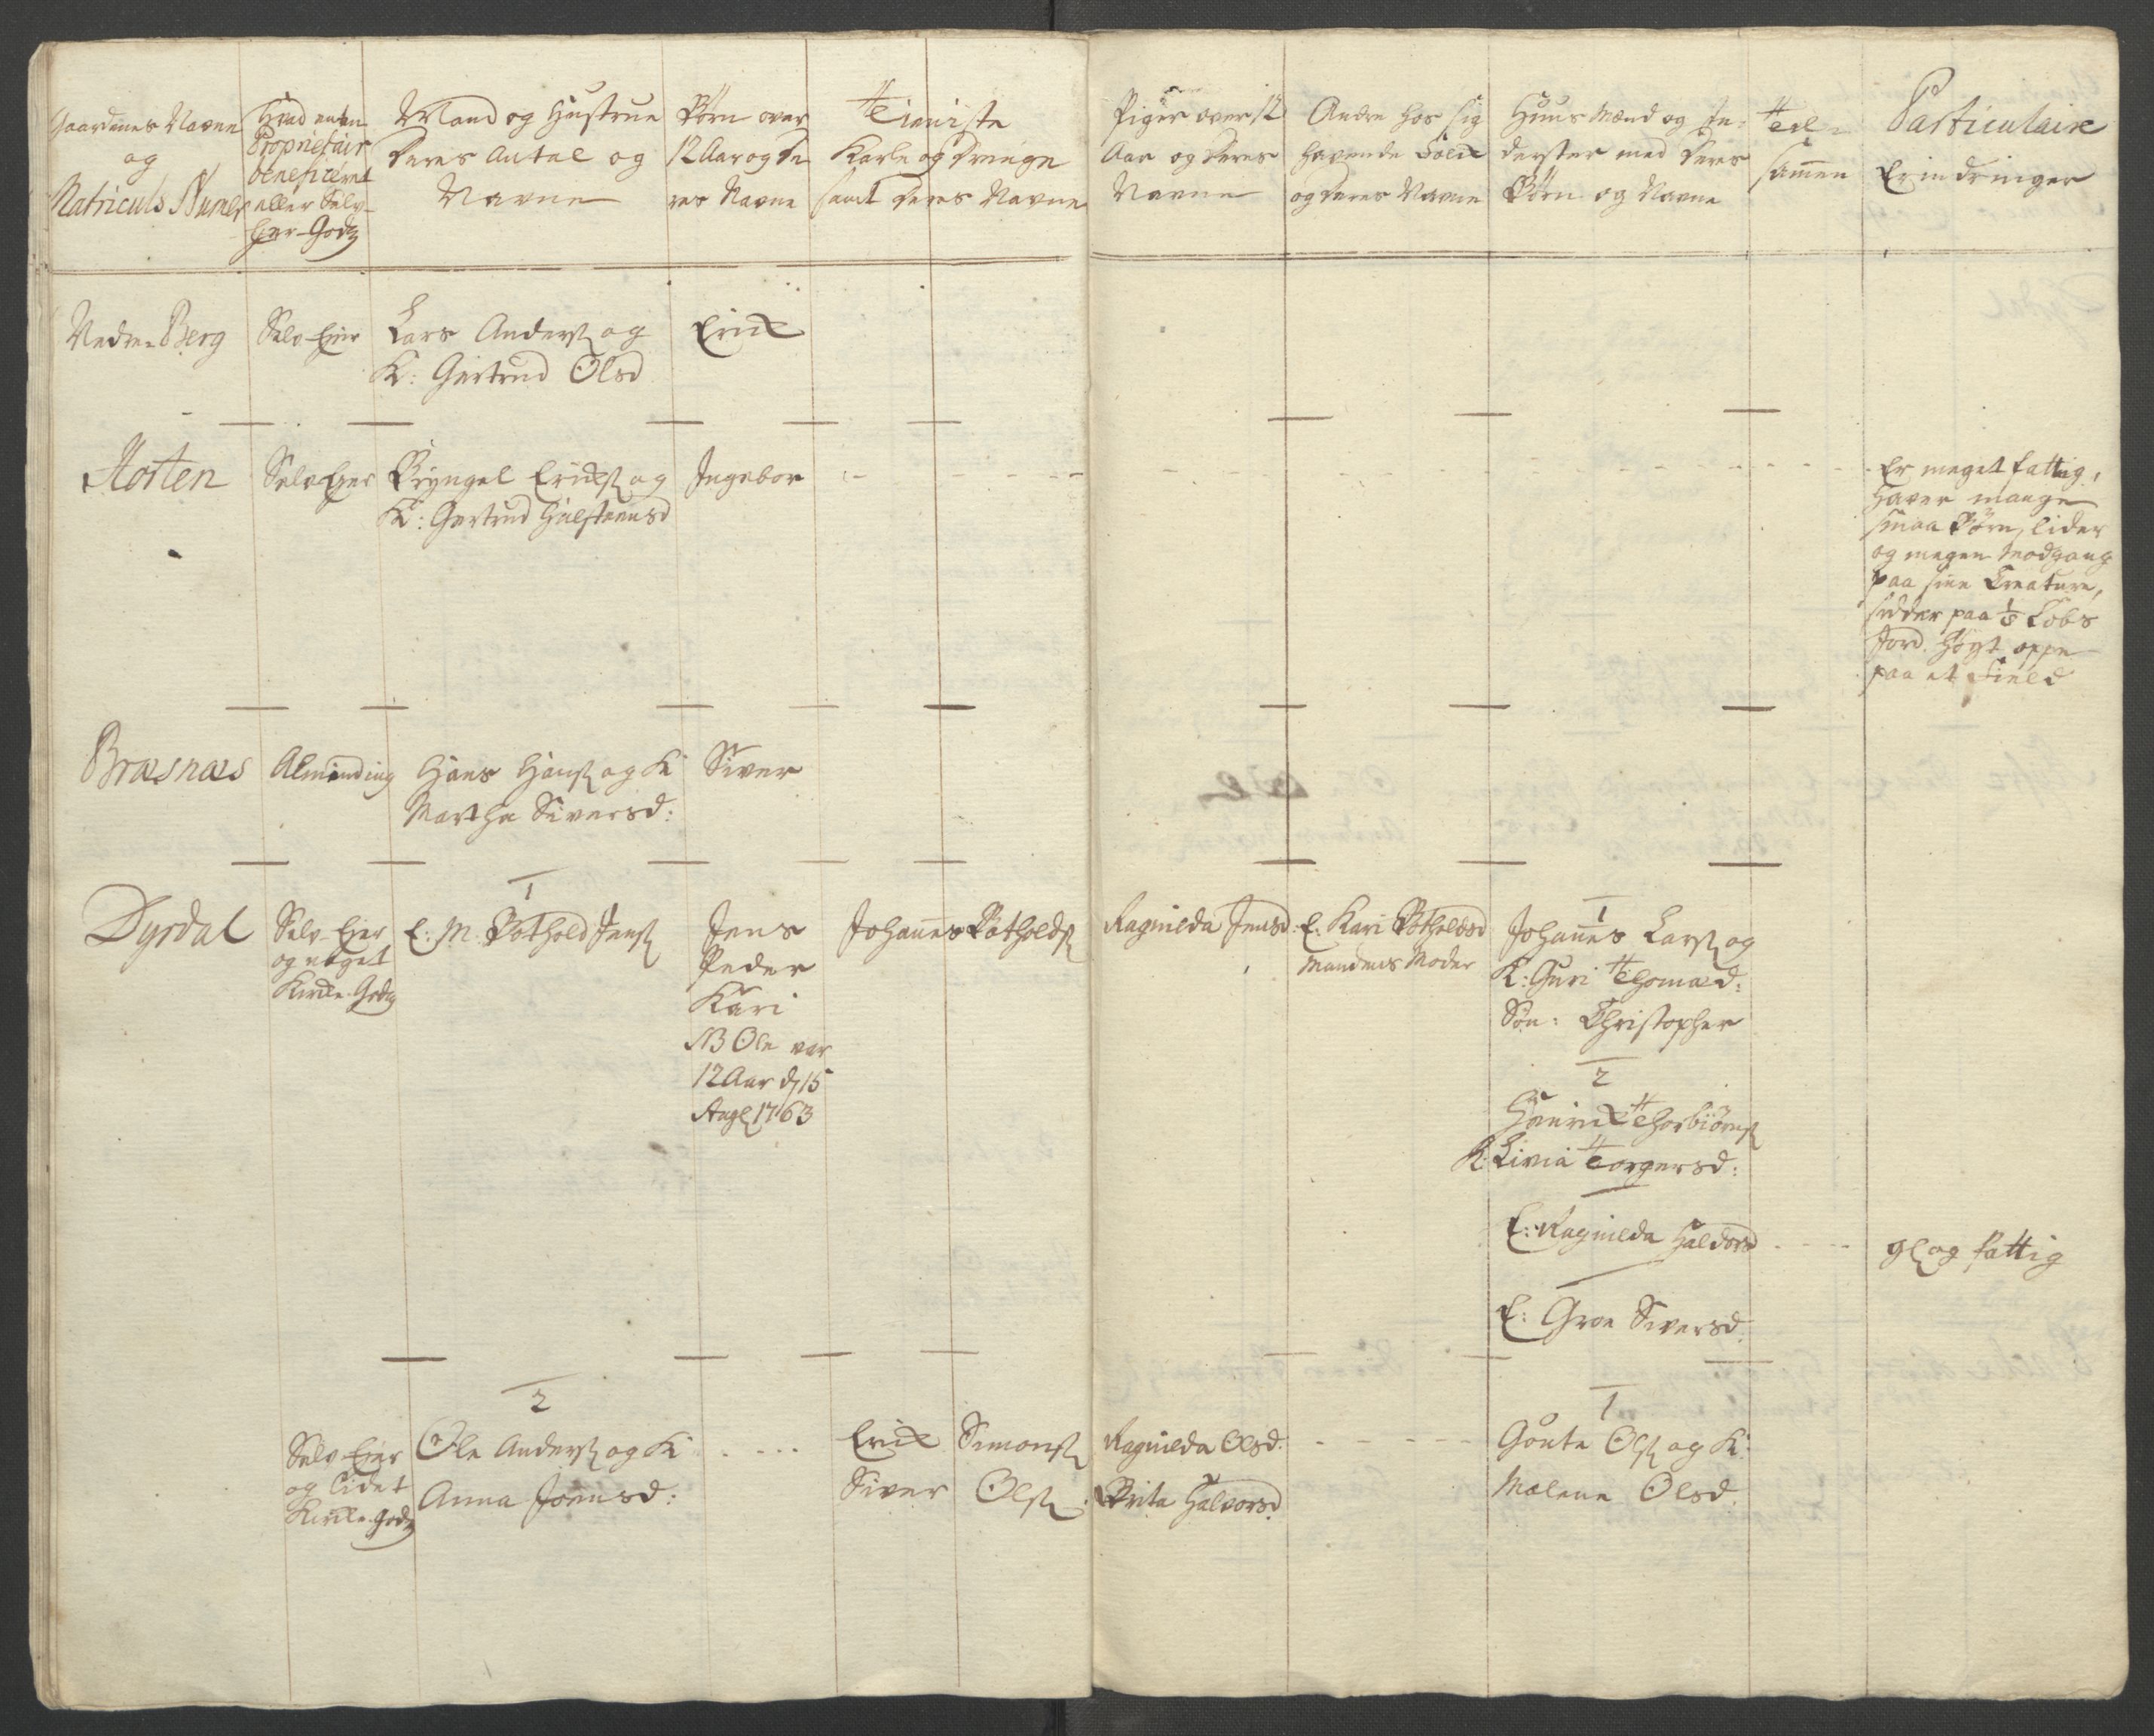 Gaardenes Navne
og
Matriculs Numer
Hvad enten
Proprietair
beneficeret
eller Selv-
Eyer-Godz
Mand og Hustrue
deres Antal og
Navne
Børn over
12 Aar og de
res Navne
Tieniste
Karle og Drenge
samt deres Navne
Piger over 12
Aar og deres
Navne
Andre hos sig
havende Folck
og deres Navne
Huus Mænd og In-
derster med deres
Børn og Navne
Til-
samen
Particulaire
Erindringer
Nedre Berg
Selv-Ejer
Lars Anders og
K: Giertrud Olsd
Erick
Horten
Selv Ejer
Bryngel Ericks og
K: Giertrud Halsteensd
Ingebor
Er meget fattig,
haver mange
smaa Børn, lider
og megen Modgang
paa sine Creature,
sidder paa Løbs
Jord. Høgt oppe
paa et Field
Bræsnæs
Alminding
Hans Hans og K
Martha Siversd:
Siver
Dyrdal
Selv-Ejer
og noget
Kircke-Godz
1
E: M. Bothold Jens
Jens
Peder
Kari
NB Ole var
12 Aar d 15
Aug 1763
Johannes Botholds
Ragnilda Jensd:
E: Kari Botholdsd
Mandens Moder
1
Johannes Lars og
K: Guri Thomæd:
Søn: Christopher
2
Henrick Thorbiørns
K: Livia Torgersd:
E: Ragnilda Haldorsd
gl og fattig
E: Groe Siversd.
2
Selv-Ejer
og lidet
Kircke-Godz
Ole Anders og K
Anna Joensd:
Erick Simons
Siver Ols
Ragnilda Olsd.
Brita Halvorsd.
1
Goute Ols og K:
Malene Olsd.